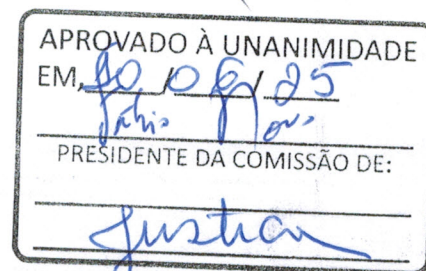 APROVADO À UNANIMIDADE
EM, 10 / 06 / 25
Fábio Novo
PRESIDENTE DA COMISSÃO DE:
Justiça